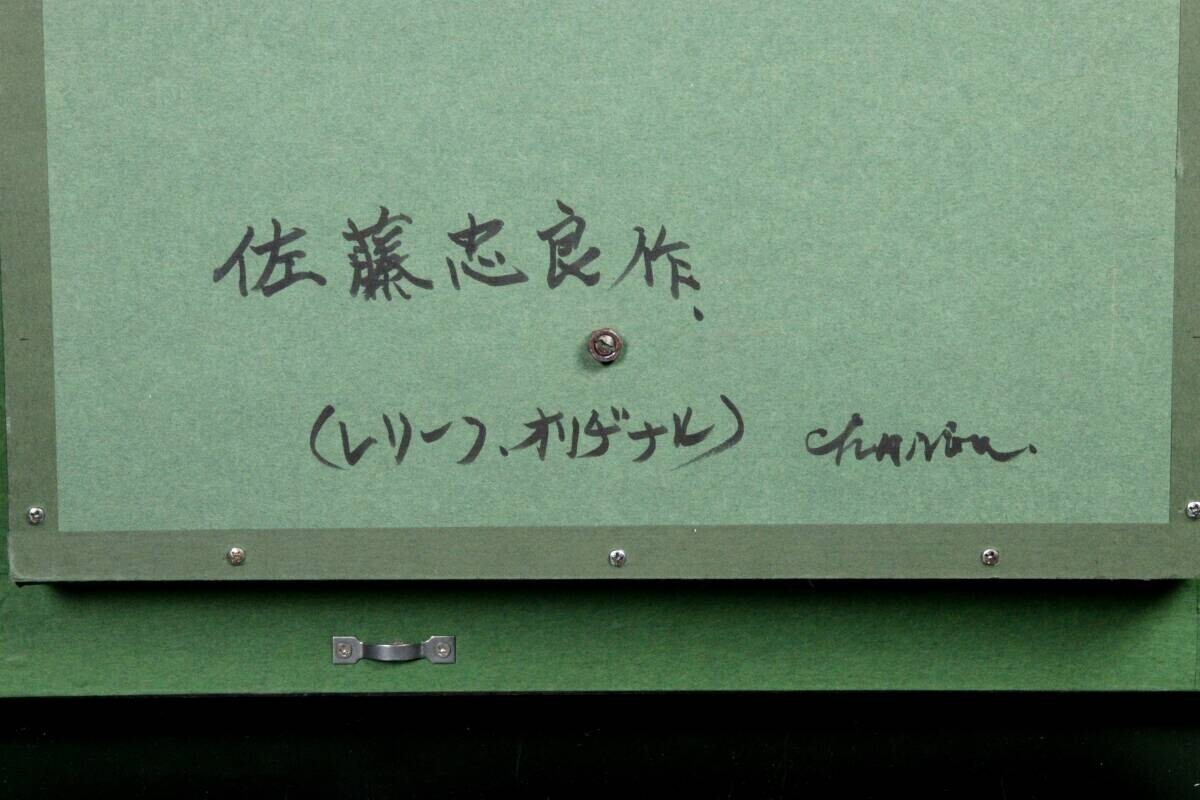 佐藤忠良作、
(レリーフ、オリヂナル)